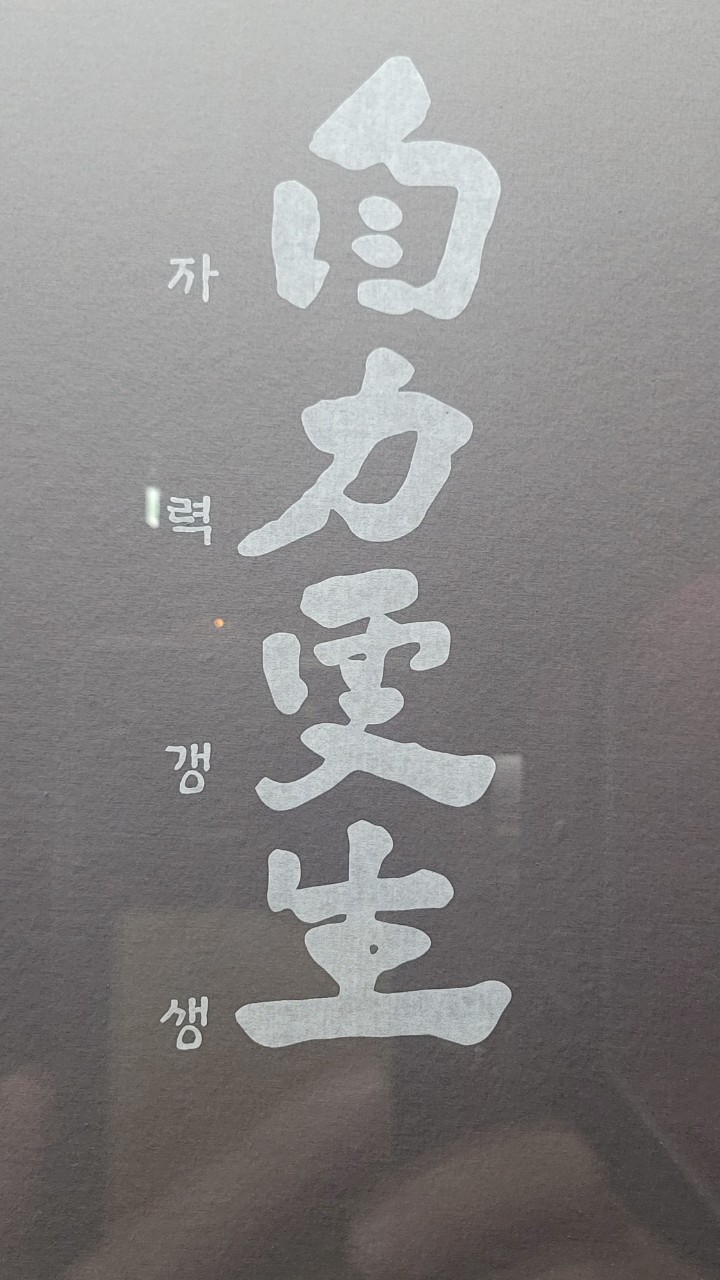 自力更生
자력갱생